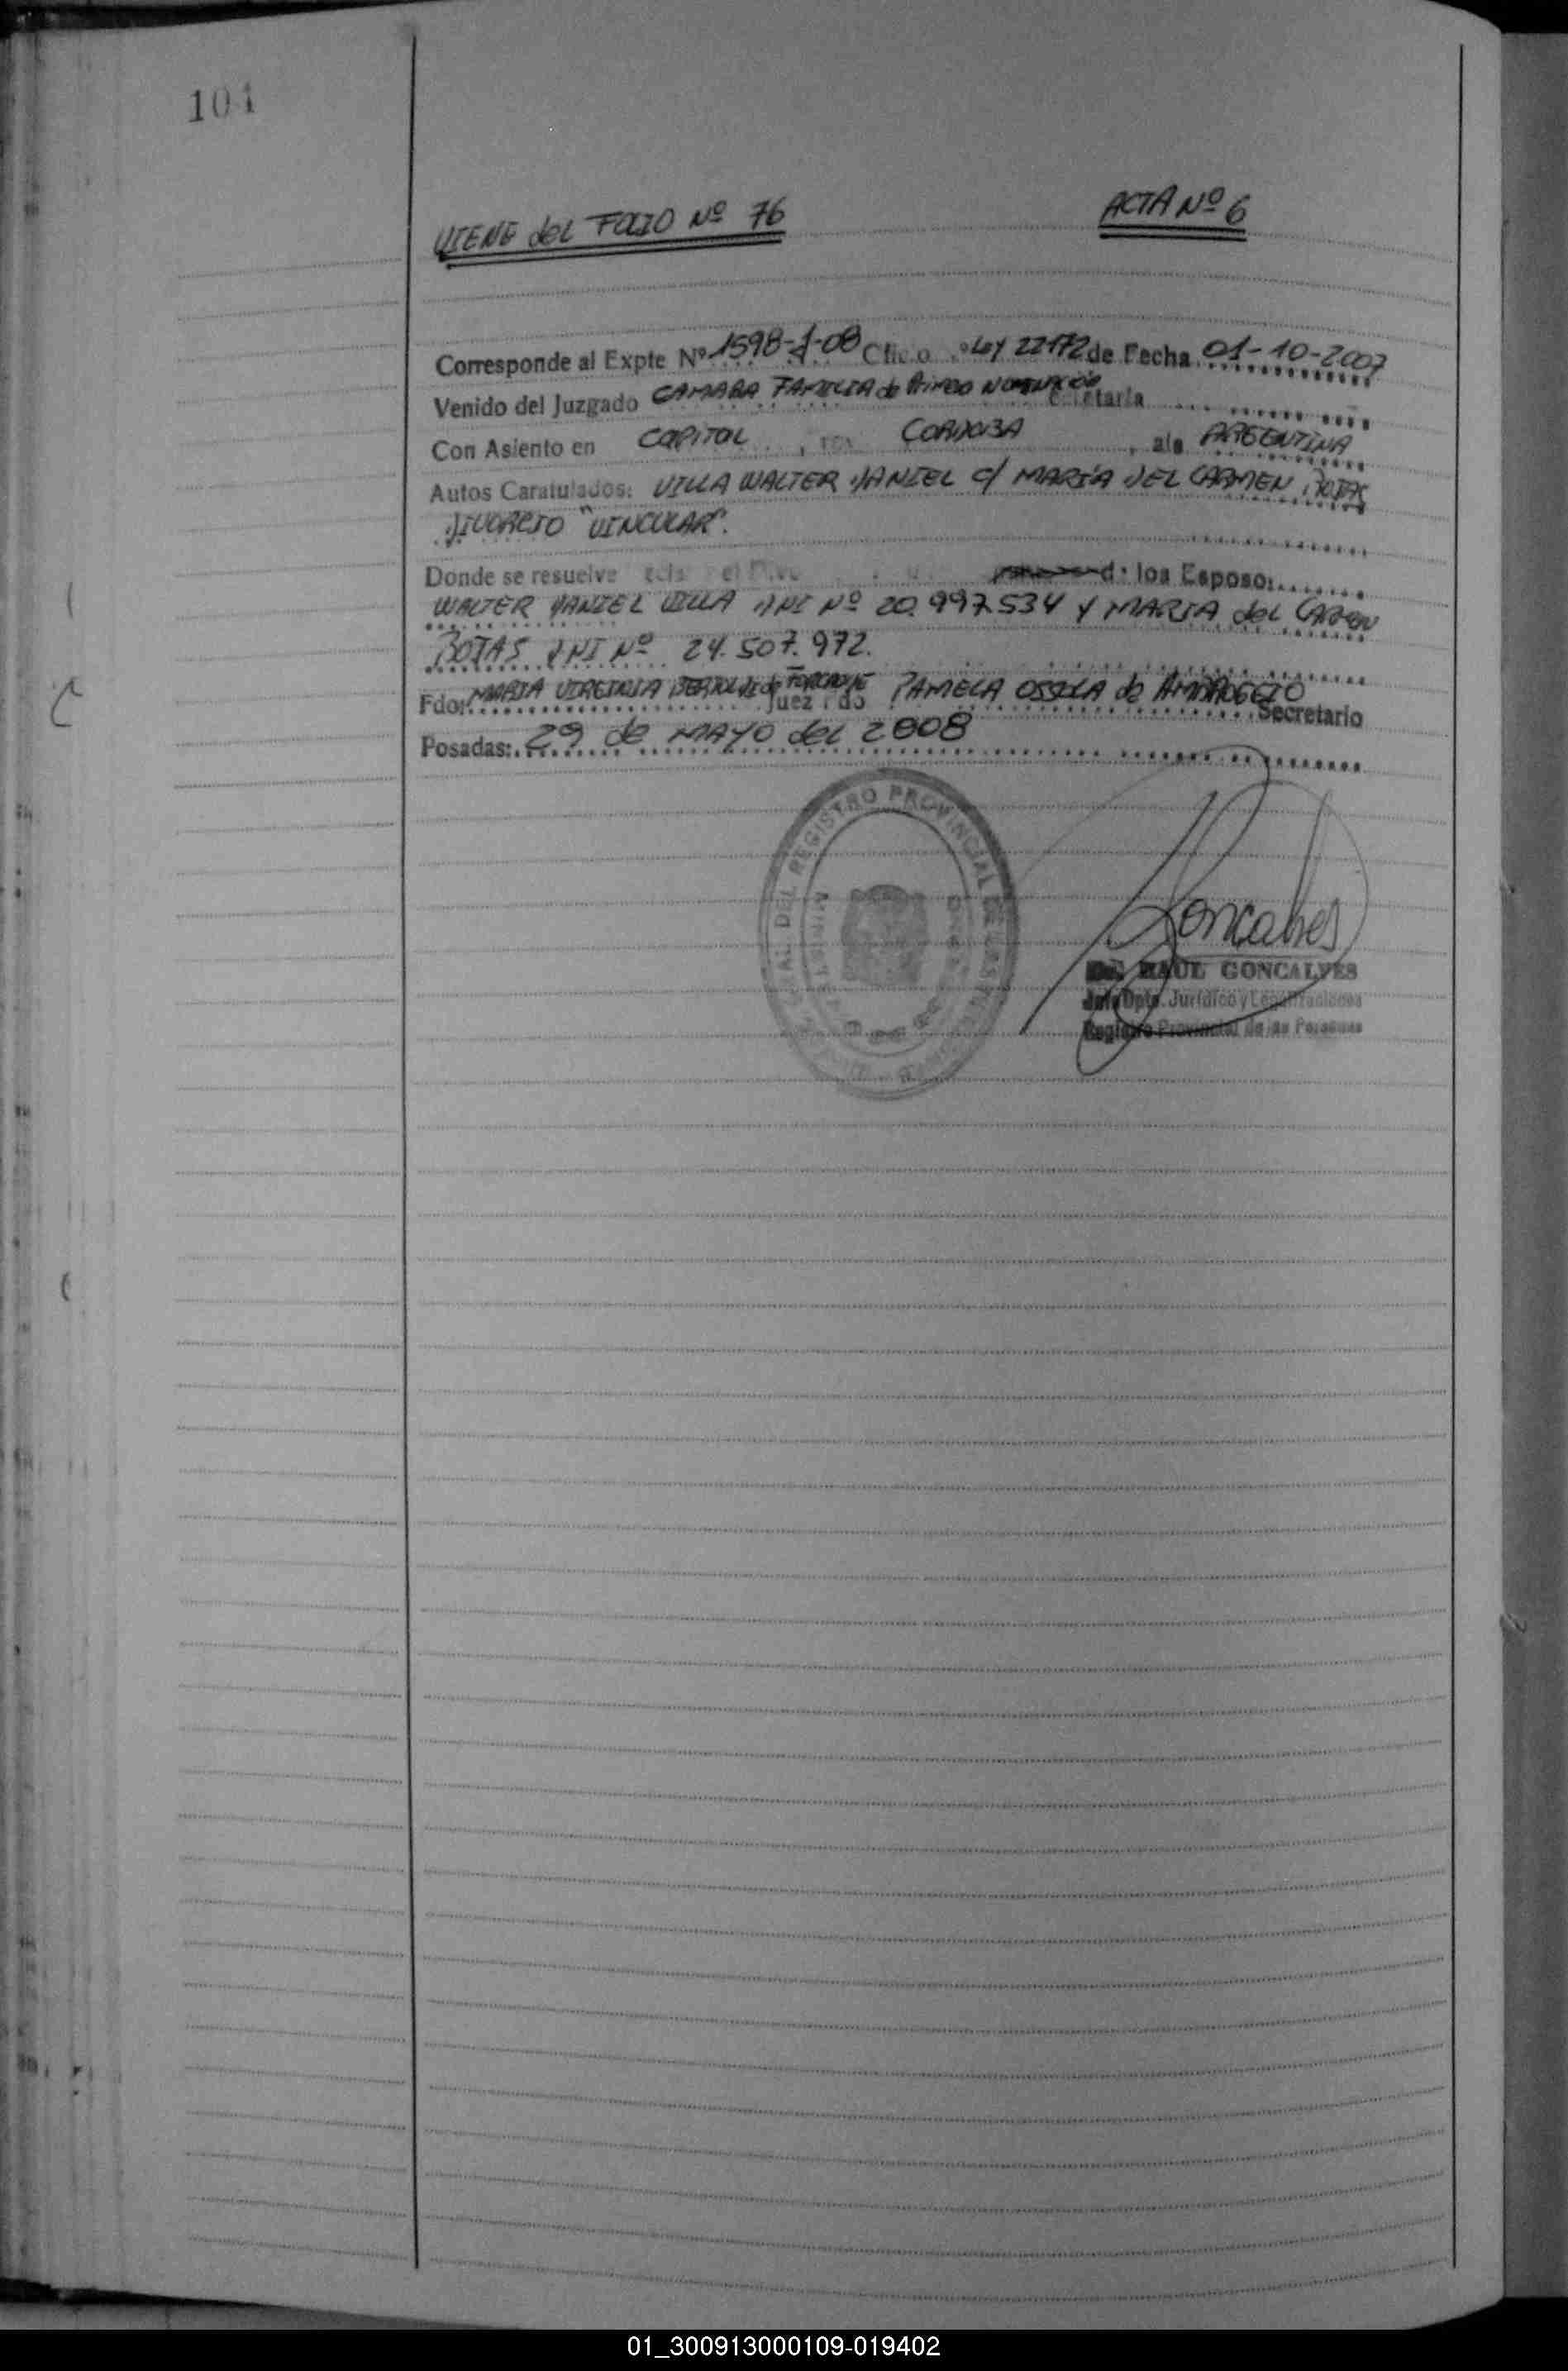 101
VIENE del FOLIO Nº 76
ACTA Nº 6
Corresponde al Expte Nº 1598-J-08 Oficio Ley 22172 de Fecha 01-10-2007
Venido del Juzgado CAMARA FAMILIA de Nominación Secretaria
Con Asiento en CAPITAL CORDOBA ARGENTINA
Autos Caratulados: VILLA WALTER DANIEL C/ MARÍA DEL CARMEN
DIVORCIO "VINCULAR".
Donde se resuelve los Esposos
WALTER DANIEL VILLA DNI Nº 20.997.534 Y MARIA del CARMEN
DNI Nº 24.507.972.
Fdo: MARIA VIRGINIA de Juez Fdo PAMELA OSSOLA de AMBROGGIO Secretario
Posadas: 29 de MAYO del 2008
DEL REGISTRO PROVINCIAL DE LAS
Goncalves
Dr. RAUL GONCALVES
Jefe Dpto. Jurídico y Legalizaciones
Registro Provincial de las Personas
01_300913000109-019402